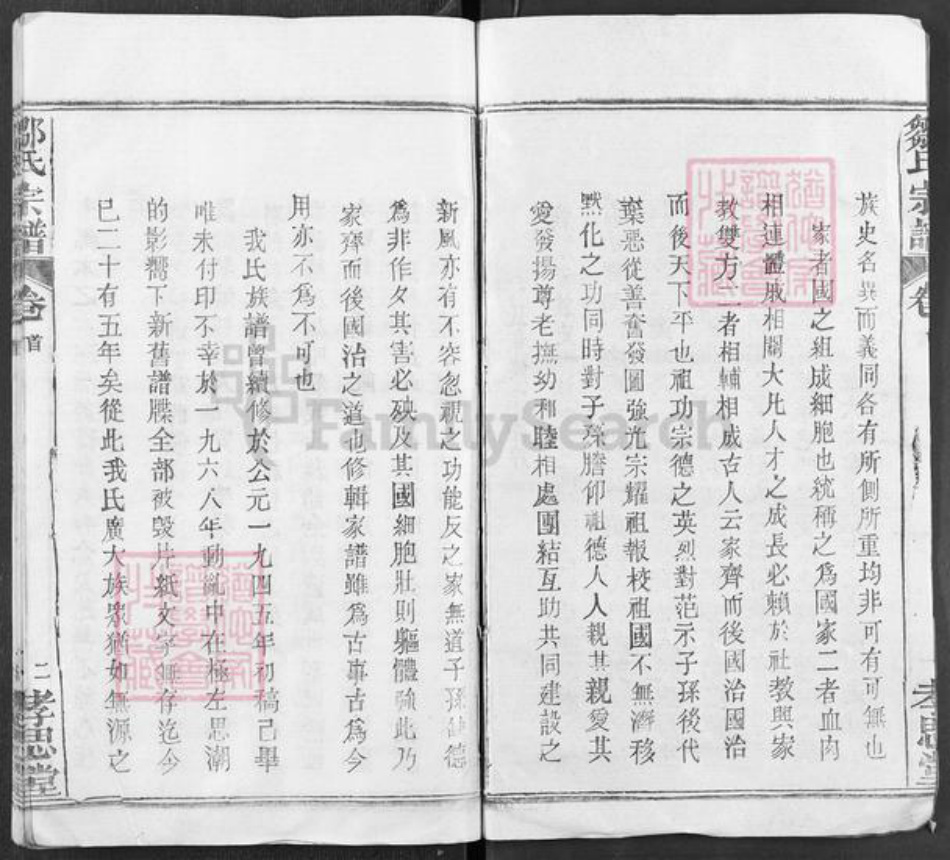 鄒氏宗譜
卷
孝思堂
族史名異而義同各有所側所重均非可有可無也
家者國之組成細胞也統稱之爲國家二者血肉
相連體戚相關大凡人才之成長必賴於社教與家
教雙方二者相輔相成古人云家齊而後國治國治
而後天下平也祖功宗德之英烈對范示子孫後代
棄惡從善奮發圖強光宗耀祖報校祖國不無濟移
默化之功同時對子孫瞻仰祖德人人親其親愛其
愛發揚尊老撫幼和睦相處團結互助共同建設之
新風亦有不容忽視之功能反之家無道子孫缺德
爲非作歹其害必殃及其國細胞壯則軀體強此乃
家齊而後國治之道也修輯家譜雖爲古事古爲今
用亦不爲不可也
我氏族譜曾續修於公元一九四五年初稿己畢
唯未付印不幸於一九六八年動亂中在極左思潮
的影響下新舊譜牒全部被毀片紙文字無存迄今
已二十有五年矣從此我氏廣大族眾猶如無源之
鄒氏宗譜
卷首
二
孝思堂
FamilySearch